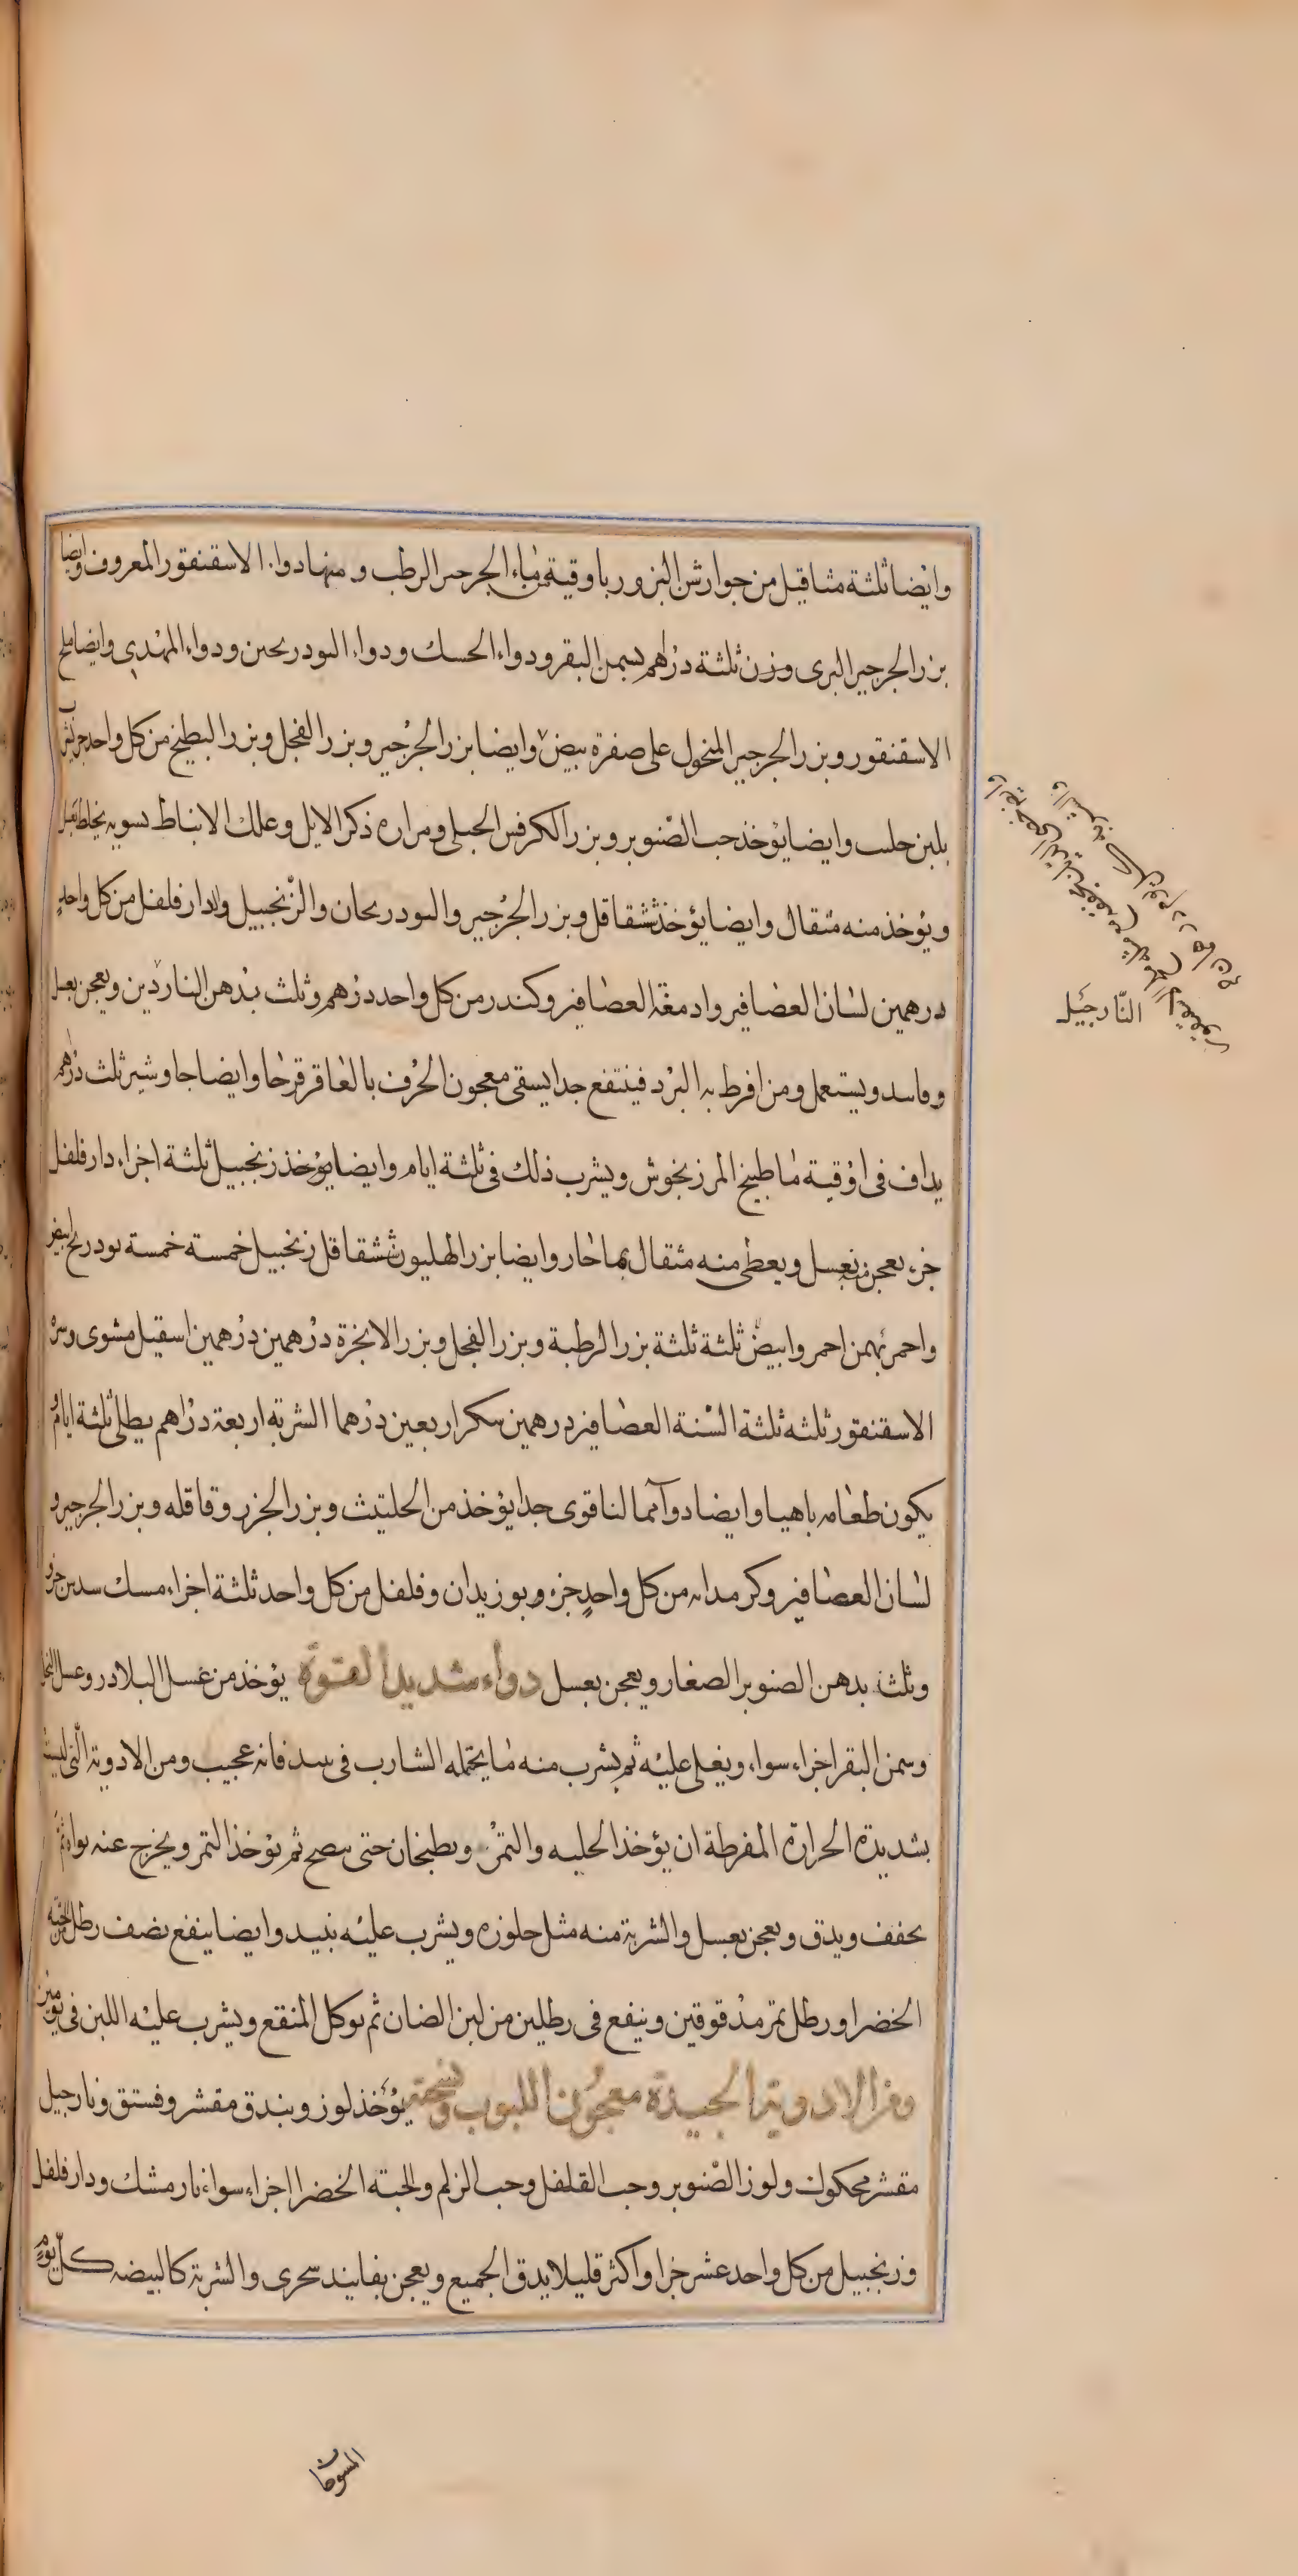 وايضا ثلثة مثاقيل من جوارش البزور باوقية من ماء الجرجير الرطب ومنها دواء الاسقنقور المعروف وايضا
بزر الجرجير البرى وزن ثلثة دراهم بسمن البقر ودواء الحسك ودواء البودريحين ودواء المهدى وايضا ملح
الاسقنقور وبزر الجرجير المنخول على صفرة بيض وايضا بزر الجرجير وبزر الفجل وبزر البطيخ من كل واحد جزء يشرب
بلبن حليب وايضا يؤخذ حب الصنوبر وبزر الكرفس الجبلى ومراره ذكر الايل وعلك الانباط بسويه يخلط بعسل
ويؤخذ منه مثقال وايضا يؤخذ شقاقل وبزر الجرجير والبودريحان والزنجبيل والدار فلفل من كل واحد
درهمين لسان العصافير وادمغة العصافير وكندر من كل واحد درهم وثلث بدهن الناردين ويعجن بعسل
وفاسد ويستعمل ومن افرط به البرد فينتفع جدا يسقى معجون الحرف بالعاقرقرحا وايضا جاوشير ثلث درهم
يداف فى اوقية ما طبيخ المرزنجوش ويشرب ذلك فى ثلثة ايام وايضا يؤخذ زنجبيل ثلثة اجزاء دار فلفل
جزء يعجن منه بعسل ويعطى منه مثقال بما حار وايضا بزر الهليون شقاقل زنجبيل خمسة خمسة بودريح ابيض
واحمر بهمن احمر وابيض ثلثة ثلثة بزر الرطبة وبزر الفجل وبزر الانجرة درهمين درهمين اسقيل مشوى وسرة
الاسقنقور ثلثه ثلثة السنة العصافير درهمين سكر اربعين درهما الشربه اربعة دراهم بطلى ثلثة ايام و
يكون طعامه باهيا وايضا دواء مما لنا قوى جدا يؤخذ من الحلتيت وبزر الجزر وقاقله وبزر الجرجير و
لسان العصافير وكرمدانه من كل واحد جزء وبوزيدان وفلفل من كل واحد ثلثة اجزاء مسك سدس جزء
وثلث بدهن الصنوبر الصغار ويعجن بعسل دواء شديد القوة يؤخذ من عسل البلادر وعسل النحل
وسمن البقر اجزاء سواء ويغلى عليه ثم يشرب منه ما يحتمله الشارب فى بيذ فانه عجيب ومن الادوية التى ليست
بشديدة الحرارة المفرطة ان يؤخذ الحلبه والتمر ويطبخان حتى ينضج ثم يؤخذ التمر ويخرج عنه نواه ثم
يجفف ويدق ويعجن بعسل والشربة منه مثل جلوزه ويشرب عليه نبيذ وايضا ينفع نصف رطل من الحبة
الخضرا ورطل تمر مدقوقين وينقع فى رطلين من لبن الضان ثم يوكل المنقع ويشرب عليه اللبن فى يومين
ومن الادوية الجيدة معجون اللبوب ونسخته يؤخذ لوز وبندق مقشر وفستق ونارجيل
مقشر محكوك ولوز الصنوبر وحب القلفل وحب الزلم والحبة الخضرا اجزاء سواء نارمشك ودار فلفل
وزنجبيل من كل واحد عشر جزا واكثر قليلا يدق الجميع ويعجن بفانيد سجرى والشربة كالبيضه كل يوم
النارجيل